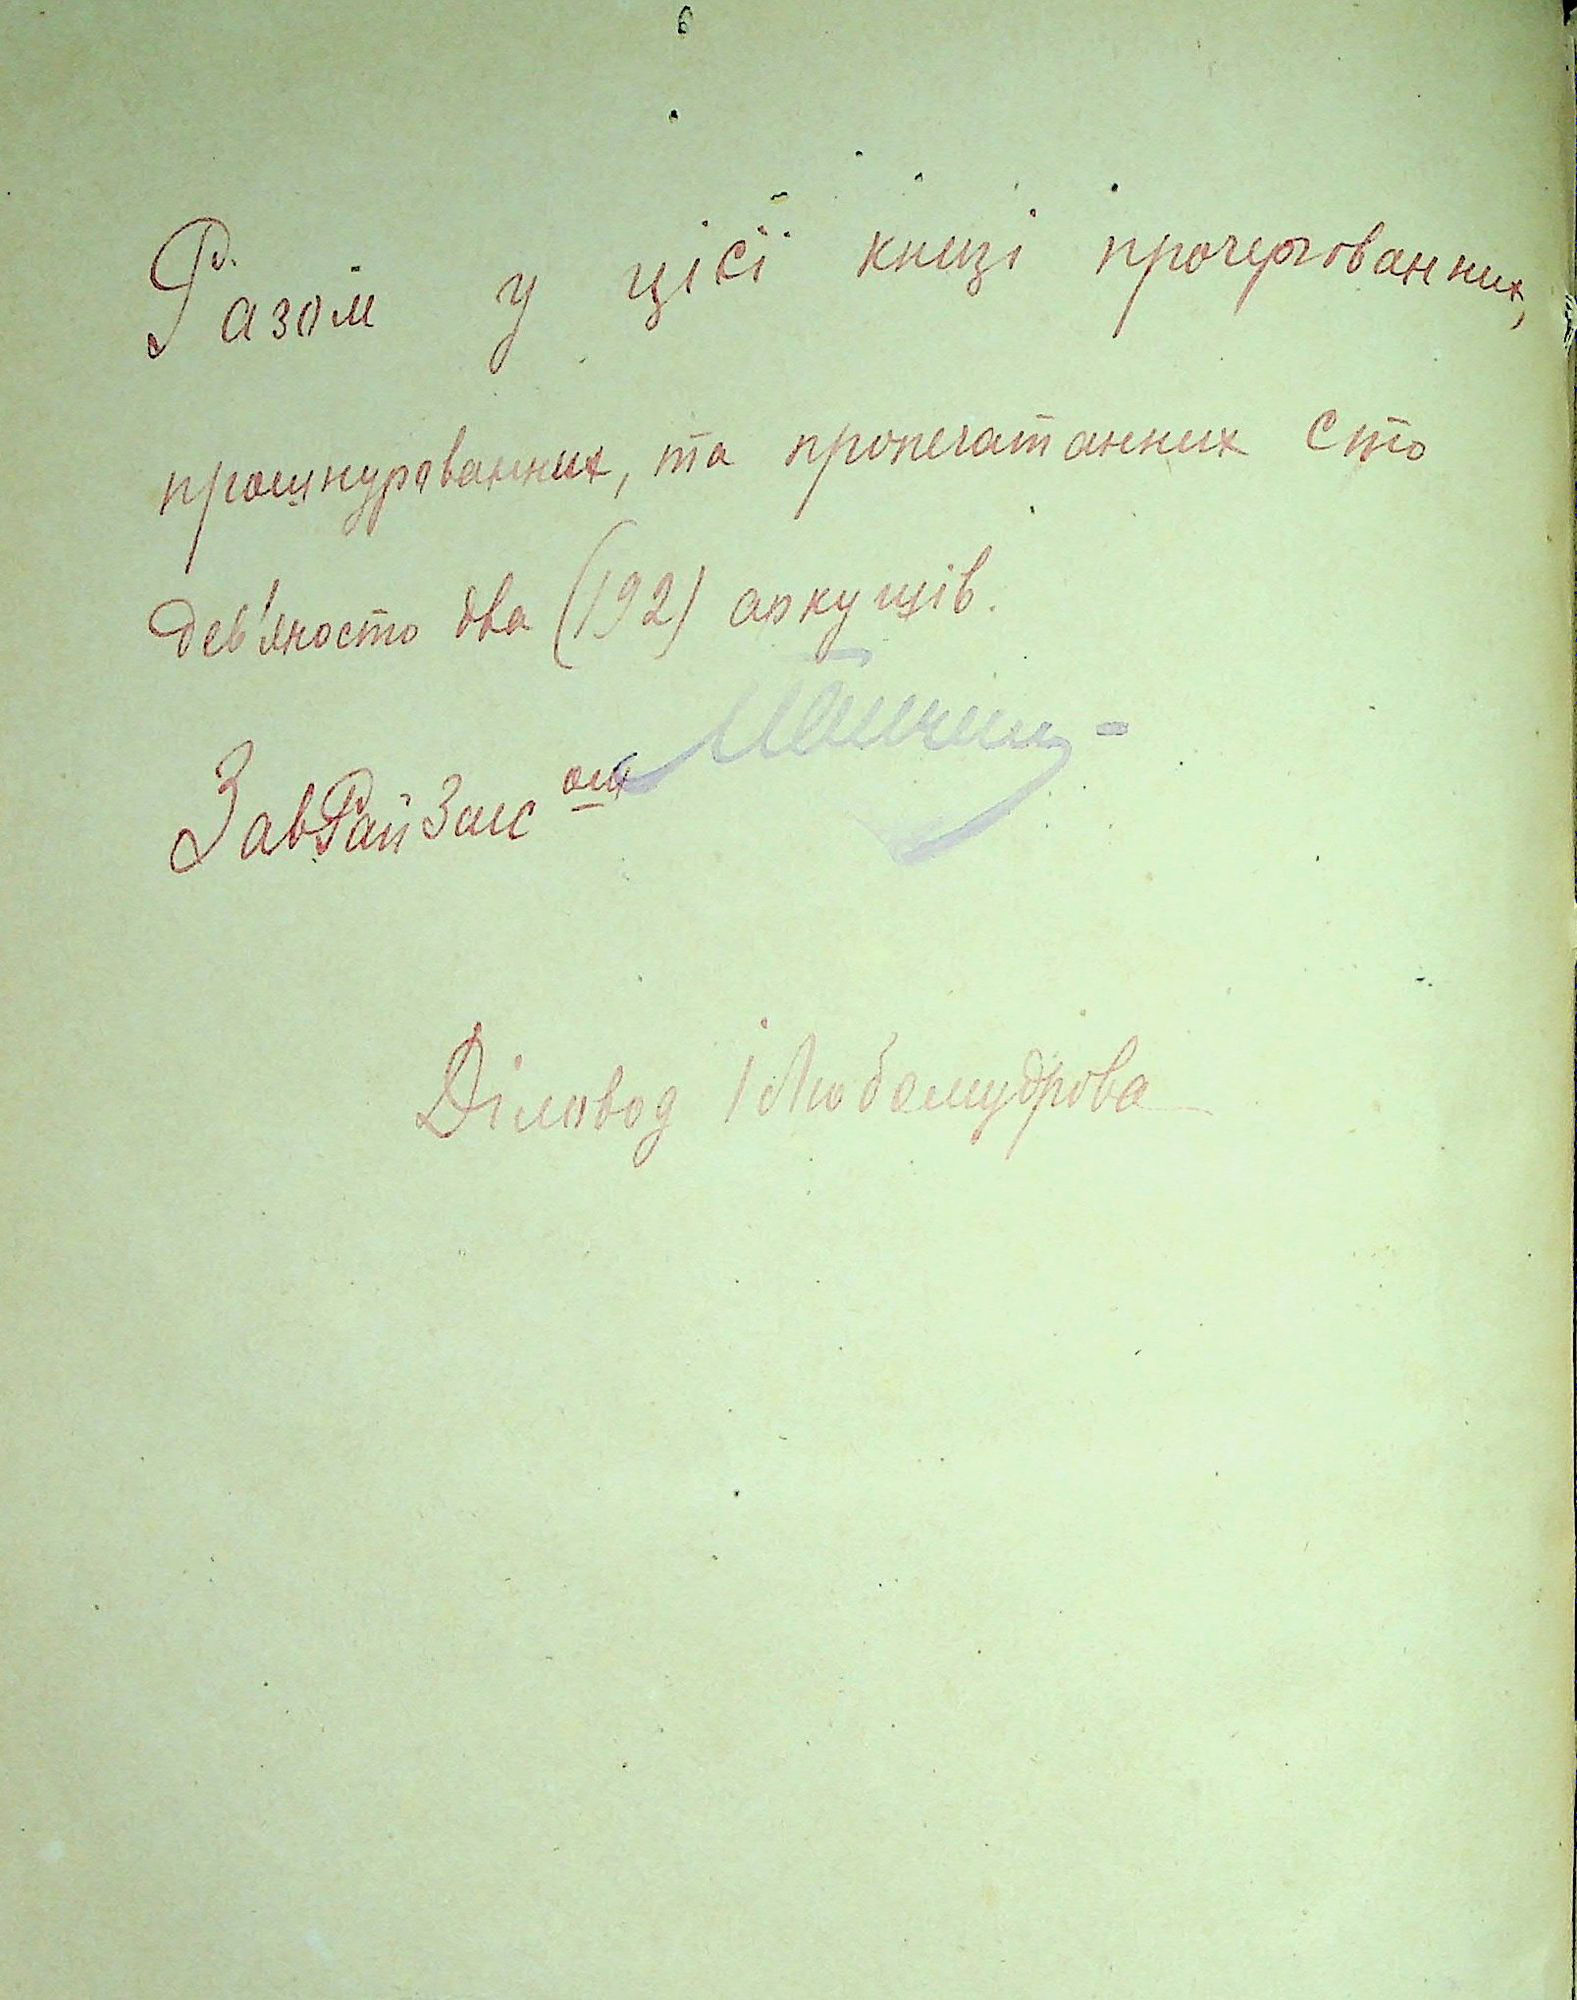 Разом у цієї книзі прочергованних,
прошнурованних, та пропечатанних сто
дев'яносто два (192) аркушів.
ЗавРайЗагс ом
Діловод / Любомудрова